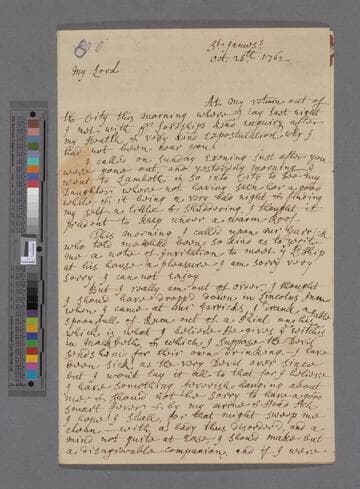 St. James's
Oct. 26th 1762
My Lord
At my return out of
the City this morning where I lay last night
I met with yr Lordships kind enquiry after
my Health, & very kind Expostulation why I
had not been near you.
I called on Sunday Evening just after you
were gone out, and yesterday morning I
went to Lambeth, & so City to see my
Daughter where not having seen her a good
while & it being a very bad night & finding
my self a little & shiddering, I thought it
prudent to keep under a warm Roof.
This morning I called upon Mr Garrick
who told me had been so kind as to write
me a note of Invitation to meet yr Ldship
at his house a pleasure I am sorry very
sorry I can not enjoy.
But I really am out of order, I thought
I should have dropped down in Lincolns Inn
where I came at Mr Garricks, I drank a table
spoonfull of Rum out of a Phial one third
which is what I believe He gives ye witches
in Mackbeth, & which I suppose the Devil
sends Him for their own drinking. I have
been sick as the very Devil ever since
but I won't lay it all to that, for I believe
I have something feverish hanging about
me, & should not be sorry to have a good
smart fever & by my arme & Head Ach
I hope I shall, for that might sweep me
clean — with a body thus disorder'd, and a
mind not quite at Ease, I should make but
a disagreeable companion, and if I were